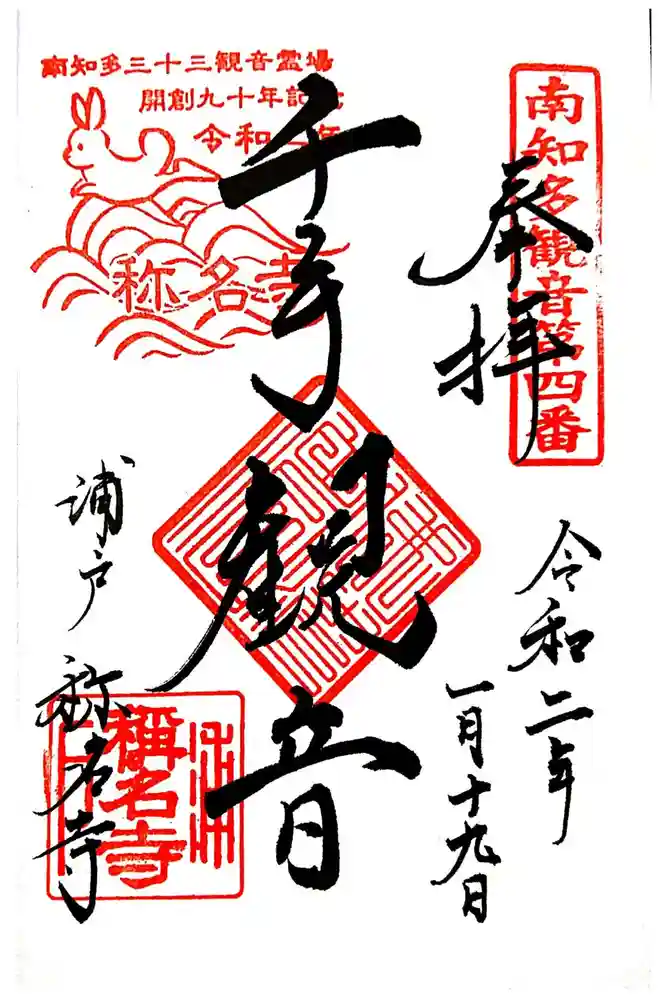 南知多観音第四番
奉拝
令和二年
一月十九日
千手観音
南知多三十三観音霊場
開創九十年記念
令和二年
称名寺
浦戸 称名寺
稱名寺